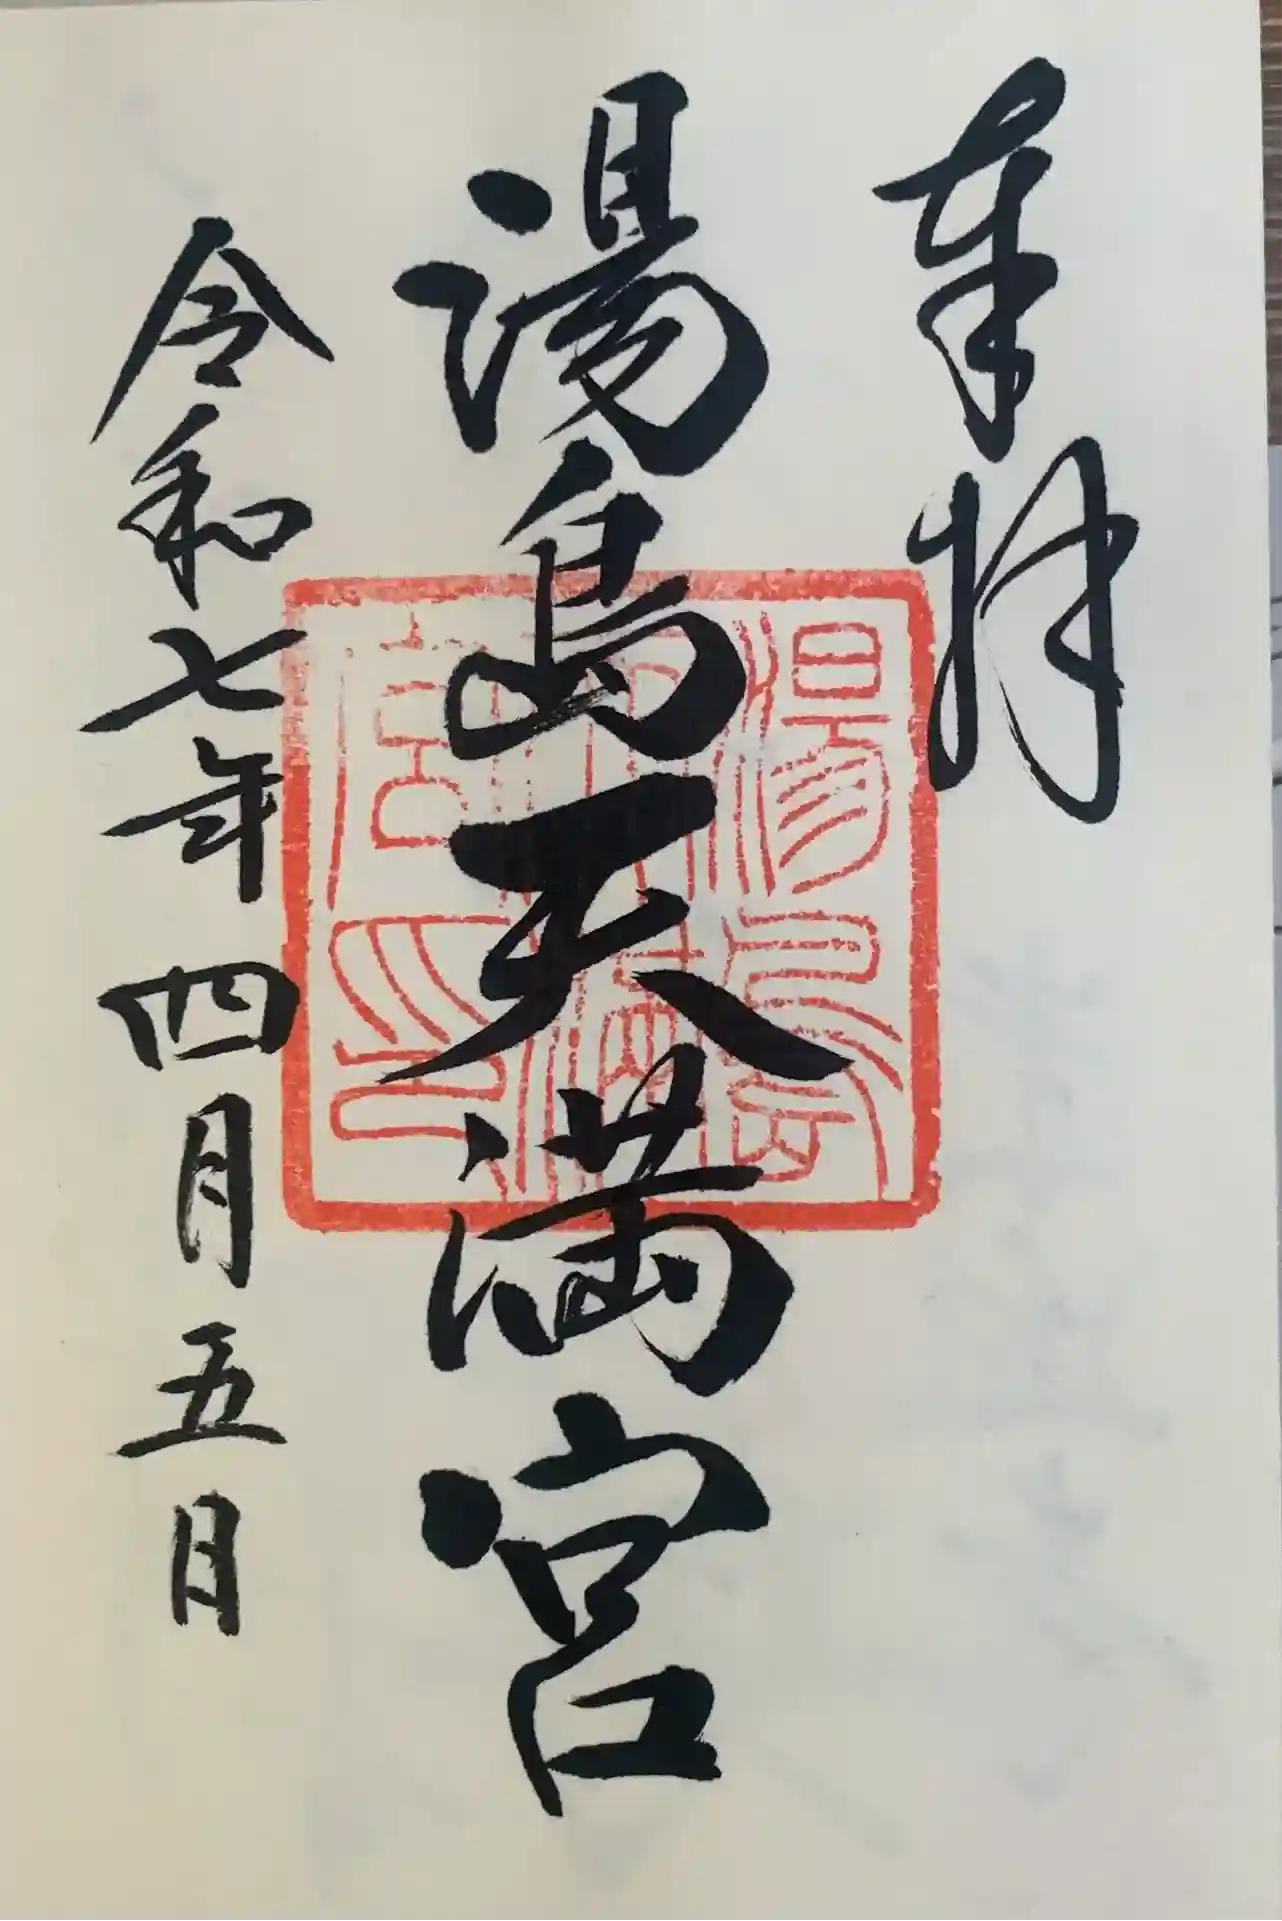 奉拝
湯島天満宮
令和七年四月五日
湯島
天満
宮印